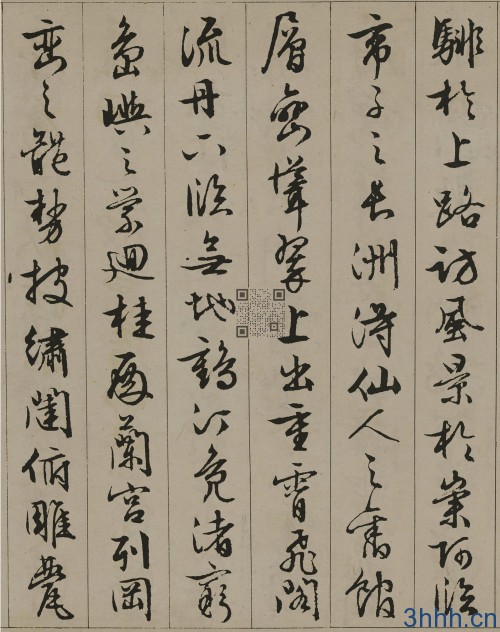 騑於上路訪風景於崇阿臨
帝子之長洲得仙人之舊館
層巒聳翠上出重霄飛閣
流丹下臨無地鶴汀鳧渚窮
島嶼之縈廻桂殿蘭宮列岡
巒之體勢披繡闥俯雕甍
3hhh.cn